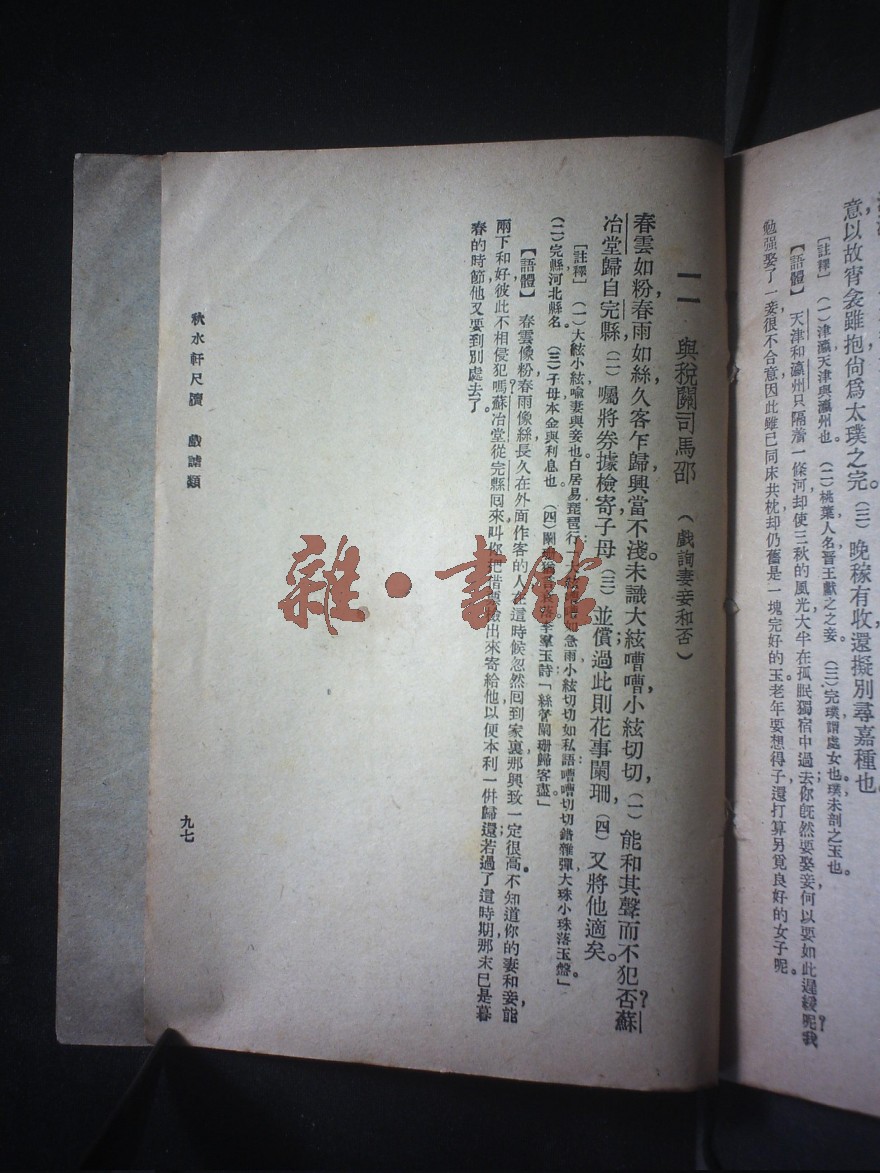 意以故宵衾雖抱尙爲太璞之完。(三)晚稼有收，還擬別尋嘉種也。
[註釋] (一)津瀛天津與瀛州也。(二)桃葉人名晉王獻之之妾。(三)完璞謂處女也。璞未剖之玉也。
【語體】 天津和瀛州只隔着一條河却使三秋的風光大半在孤眠獨宿中過去你旣然要娶妾何以要如此遲緩呢？我
勉强娶了一妾很不合意因此雖已同床共枕却仍舊是一塊完好的玉老年要想得子還打算另覓良好的女子呢。
一一 與稅關司馬邵 (戲詢妻妾和否)
春雲如粉，春雨如絲，久客乍歸，興當不淺。未識大絃嘈嘈，小絃切切，(一)能和其聲而不犯否？蘇
冶堂歸自完縣，(二)囑將券據檢寄，子母(三)並償；過此則花事闌珊，(四)又將他適矣。
[註釋] (一)大絃小絃喩妻與妾也。白居易琵琶行「大絃嘈嘈如急雨小絃切切如私語嘈嘈切切錯雜彈大珠小珠落玉盤」
(二)完縣河北縣名。(三)子母本金與利息也。(四)闌珊羣玉詩「絲管闌珊歸客盡」
【語體】 春雲像粉，春雨像絲，長久在外面作客的人，在這時候忽然囘到家裏，那興致一定很高。不知道你的妻和妾能
兩下和好彼此不相侵犯嗎？蘇冶堂從完縣囘來，叫你把借票檢出來寄給他，以便本利一併歸還；若過了這時期，那末已是暮
春的時節，他又要到別處去了。
秋水軒尺牘 戲謔類
九七
雜·書館